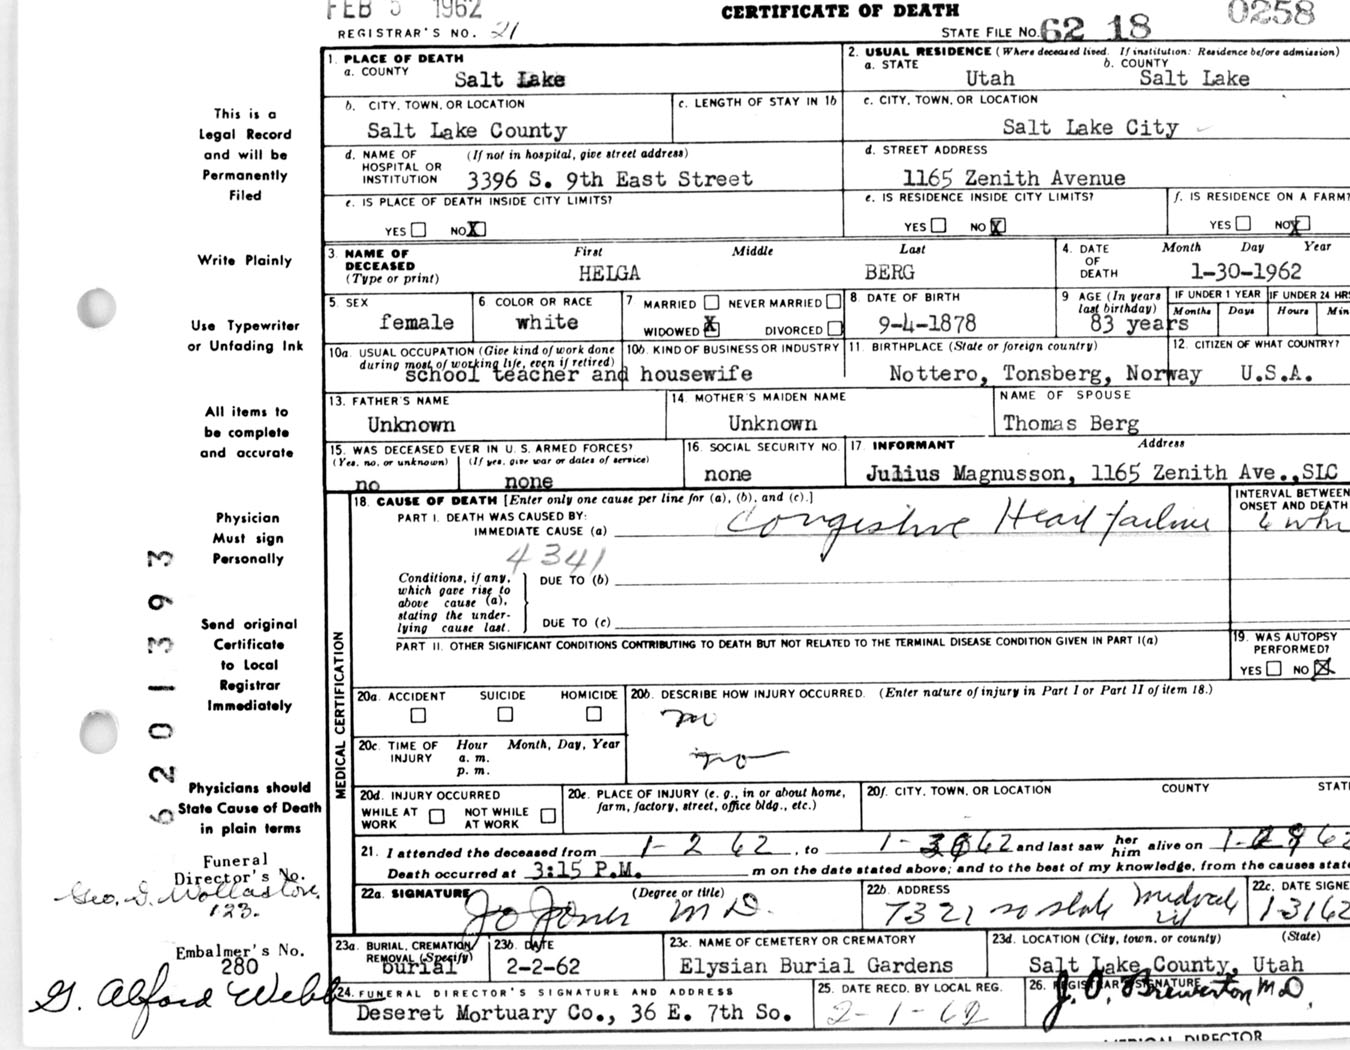 FEB 5 1962
CERTIFICATE OF DEATH
0258
REGISTRAR'S NO. 21
STATE FILE No. 62 18
1. PLACE OF DEATH
a. COUNTY
Salt Lake
2. USUAL RESIDENCE (Where deceased lived. If institution: Residence before admission)
a. STATE
Utah
b. COUNTY
Salt Lake
b. CITY, TOWN, OR LOCATION
Salt Lake County
c. LENGTH OF STAY IN 1b
c. CITY, TOWN, OR LOCATION
Salt Lake City
d. NAME OF HOSPITAL OR INSTITUTION
(If not in hospital, give street address)
3396 S. 9th East Street
d. STREET ADDRESS
1165 Zenith Avenue
e. IS PLACE OF DEATH INSIDE CITY LIMITS?
YES NO X
e. IS RESIDENCE INSIDE CITY LIMITS?
YES NO X
f. IS RESIDENCE ON A FARM?
YES NO X
3. NAME OF DECEASED
(Type or print)
First Middle Last
HELGA BERG
4. DATE OF DEATH
Month Day Year
1-30-1962
5. SEX
female
6 COLOR OR RACE
white
7 MARRIED NEVER MARRIED
WIDOWED X DIVORCED
8 DATE OF BIRTH
9-4-1878
9 AGE (In years last birthday)
83 years
IF UNDER 1 YEAR
Months Days
IF UNDER 24 HRS
Hours Min
10a. USUAL OCCUPATION (Give kind of work done during most of working life, even if retired)
10b. KIND OF BUSINESS OR INDUSTRY
school teacher and housewife
11. BIRTHPLACE (State or foreign country)
Nottero, Tonsberg, Norway
12. CITIZEN OF WHAT COUNTRY?
U.S.A.
13. FATHER'S NAME
Unknown
14. MOTHER'S MAIDEN NAME
Unknown
NAME OF SPOUSE
Thomas Berg
15. WAS DECEASED EVER IN U. S. ARMED FORCES?
(Yes, no, or unknown) (If yes, give war or dates of service)
no none
16. SOCIAL SECURITY NO.
none
17. INFORMANT Address
Julius Magnusson, 1165 Zenith Ave.,SLC
MEDICAL CERTIFICATION
18. CAUSE OF DEATH [Enter only one cause per line for (a), (b), and (c).]
PART I. DEATH WAS CAUSED BY:
IMMEDIATE CAUSE (a) Congestive Heart failure
INTERVAL BETWEEN ONSET AND DEATH
4341
Conditions, if any, which gave rise to above cause (a), stating the underlying cause last.
DUE TO (b)
DUE TO (c)
PART II. OTHER SIGNIFICANT CONDITIONS CONTRIBUTING TO DEATH BUT NOT RELATED TO THE TERMINAL DISEASE CONDITION GIVEN IN PART I(a)
19. WAS AUTOPSY PERFORMED?
YES NO X
20a. ACCIDENT SUICIDE HOMICIDE
20b. DESCRIBE HOW INJURY OCCURRED. (Enter nature of injury in Part I or Part II of item 18.)
no
no
20c. TIME OF INJURY
Hour Month, Day, Year
a. m.
p. m.
20d. INJURY OCCURRED
WHILE AT WORK NOT WHILE AT WORK
20e. PLACE OF INJURY (e. g., in or about home, farm, factory, street, office bldg., etc.)
20f. CITY, TOWN, OR LOCATION COUNTY STATE
21. I attended the deceased from 1-2 62, to 1-30 62 and last saw her him alive on
Death occurred at 3:15 P.M. m on the date stated above; and to the best of my knowledge, from the causes state
22a. SIGNATURE (Degree or title)
Jo Jones M D.
22b. ADDRESS
7321 so State Medical
22c. DATE SIGNE
13162
23a. BURIAL, CREMATION REMOVAL (Specify)
burial
23b. DATE
2-2-62
23c. NAME OF CEMETERY OR CREMATORY
Elysian Burial Gardens
23d. LOCATION (City, town, or county) (State)
Salt Lake County, Utah
24. FUNERAL DIRECTOR'S SIGNATURE AND ADDRESS
Deseret Mortuary Co., 36 E. 7th So.
25. DATE RECD. BY LOCAL REG.
2-1-62
26. REGISTRAR'S SIGNATURE
J. O. Brewerton M.D.
MEDICAL DIRECTOR
This is a
Legal Record
and will be
Permanently
Filed
Write Plainly
Use Typewriter
or Unfading Ink
All items to
be complete
and accurate
Physician
Must sign
Personally
Send original
Certificate
to Local
Registrar
Immediately
Physicians should
State Cause of Death
in plain terms
Funeral
Director's No.
Geo. D. Wollaston
123.
Embalmer's No.
280
G. Alford Webb
6201393